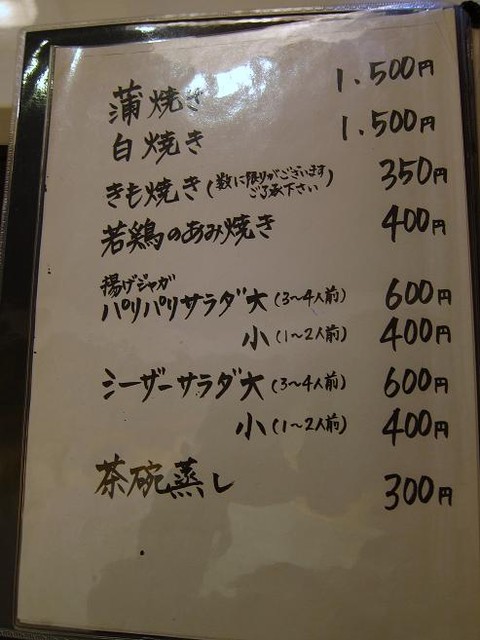 蒲焼き 1,500円
白焼き 1,500円
きも焼き(数に限りがございます ご了承下さい) 350円
若鶏のあみ焼き 400円
揚げジャガ
パリパリサラダ大(3〜4人前) 600円
小(1〜2人前) 400円
シーザーサラダ大(3〜4人前) 600円
小(1〜2人前) 400円
茶碗蒸し 300円